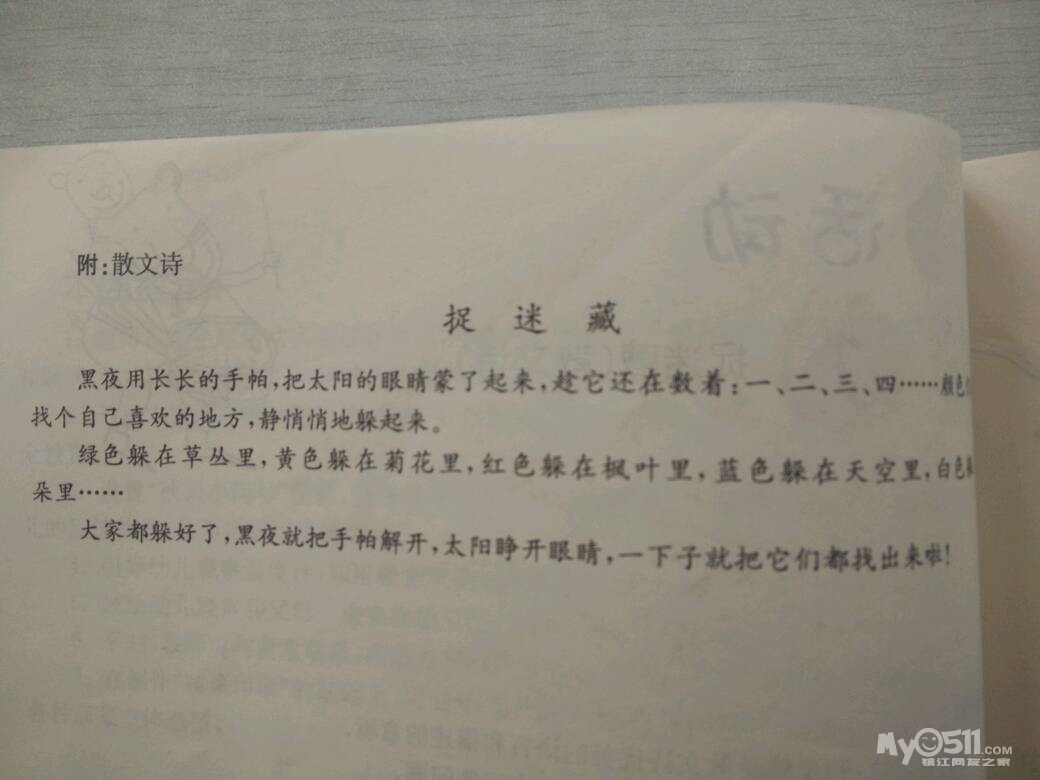 附：散文诗
捉迷藏
黑夜用长长的手帕，把太阳的眼睛蒙了起来，趁它还在数着：一、二、三、四……颜色
找个自己喜欢的地方，静悄悄地躲起来。
绿色躲在草丛里，黄色躲在菊花里，红色躲在枫叶里，蓝色躲在天空里，白色
朵里……
大家都躲好了，黑夜就把手帕解开，太阳睁开眼睛，一下子就把它们都找出来啦！
活动
My0511.COM
镇江网友之家